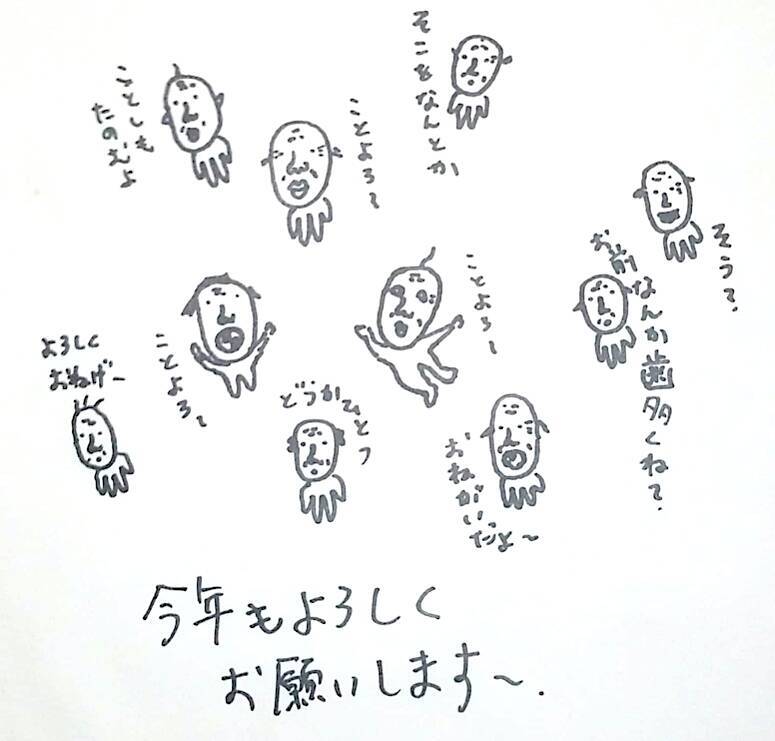 そこをなんとか
ことしも
たのむよ
ことよろ〜
そう?
お前なんか歯多くね?
ことよろ〜
ことよろ〜
よろしく
おねげ〜
どうかひとつ
おねがい
だよ〜
今年もよろしく
お願いします〜.